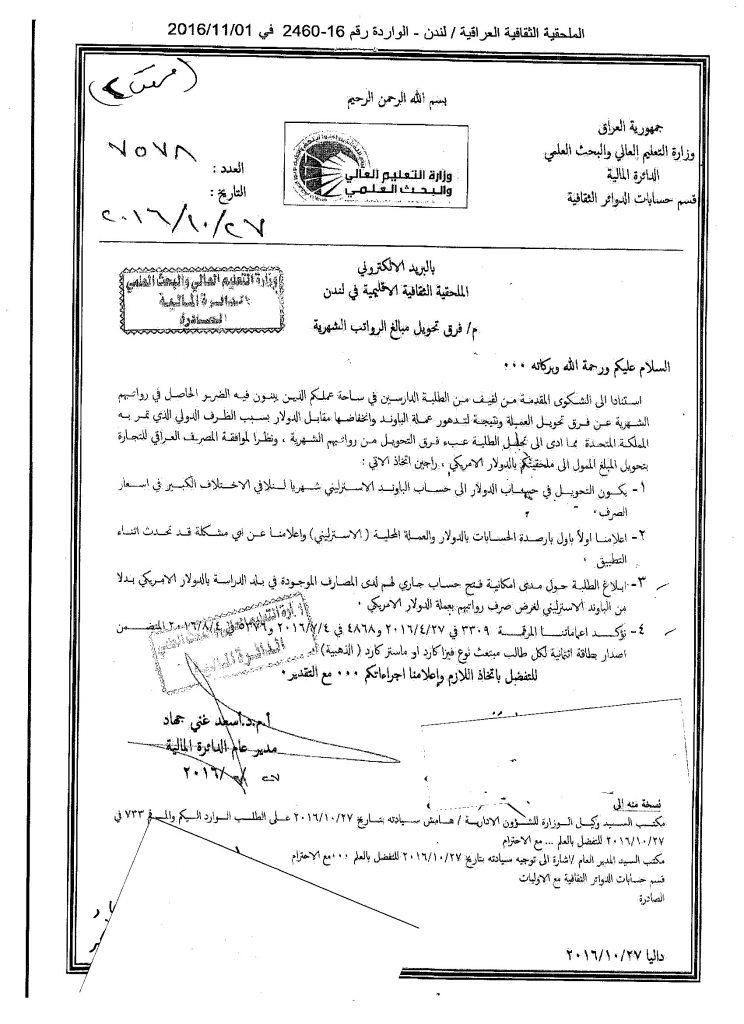 الملحقية الثقافية العراقية / لندن - الواردة رقم 16-2460 في 2016/11/01
بسم الله الرحمن الرحيم
جمهورية العراق
وزارة التعليم العالي والبحث العلمي
الدائرة المالية
قسم حسابات الدوائر الثقافية
وزارة التعليم العالي
والبحث العلمي
العدد : ٧٥٧٨
التاريخ : ٢٠١٦/١٠/٢٧
وزارة التعليم العالي والبحث العلمي
الدائرة المالية
الصادرة
بالبريد الالكتروني
الملحقية الثقافية الاقليمية في لندن
م/ فرق تحويل مبالغ الرواتب الشهرية
السلام عليكم ورحمة الله وبركاته ٠٠٠
استنادا الى الشكوى المقدمة من لفيف من الطلبة الدارسين في ساحة عملكم الذين يبنون فيه الضرر الحاصل في رواتبهم
الشهرية عن فرق تحويل العملة ونتيجة لتدهور عملة الباوند وانخفاضها مقابل الدولار بسبب الظرف الدولي الذي تمر به
المملكة المتحدة مما ادى الى تحمل الطلبة عبء فرق التحويل من رواتبهم الشهرية ، ونظرا لموافقة المصرف العراقي للتجارة
بتحويل المبلغ الممول الى ملحقيتكم بالدولار الامريكي ، راجين اتخاذ الاتي :
١- يكون التحويل في حساب الدولار الى حساب الباوند الاسترليني شهريا لتلافي الاختلاف الكبير في اسعار
الصرف .
٢- اعلامنا اولاً باول بارصدة الحسابات بالدولار والعملة المحلية ( الاسترليني) واعلامنا عن اي مشكلة قد تحدث اثناء
التطبيق .
٣- ابلاغ الطلبة حول مدى امكانية فتح حساب جاري لهم لدى المصارف الموجودة في بلد الدراسة بالدولار الامريكي بدلا
من الباوند الاسترليني لغرض صرف رواتبهم بعملة الدولار الامريكي .
٤- نؤكد اعمامنا المرقمة ٣٣٠٩ في ٢٠١٦/٤/٢٧ و٤٨٦٨ في ٢٠١٦/٧/٤ في ٢٠١٦/٨/٤ المتضمن
اصدار بطاقة ائتمانية لكل طالب مبتعث نوع فيزا كارد او ماستر كارد ( الذهبية)
للتفضل باتخاذ اللازم واعلامنا اجراءاتكم ٠٠٠ مع التقدير .
الدائرة المالية
أ.م.د.أسعد غني جهاد
مدير عام الدائرة المالية
٢٠١٦/ /٢٧
نسخة منه الى
مكتب السيد وكيل الوزارة للشؤون الادارية / هامش سيادته بتاريخ ٢٠١٦/١٠/٢٧ على الطلب الوارد اليكم ٧٣٣ في
٢٠١٦/١٠/٢٧ للتفضل بالعلم ... مع الاحترام
مكتب السيد المدير العام /اشارة الى توجيه سيادته بتاريخ ٢٠١٦/١٠/٢٧ للتفضل بالعلم ٠٠٠مع الاحترام
قسم حسابات الدوائر الثقافية مع الاوليات
الصادرة
داليا ٢٠١٦/١٠/٢٧